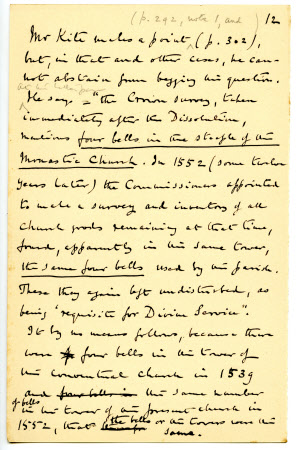 (p. 292, note 1, and 12
Mr Kite makes a point (p. 302),
but, in that and other cases, he can-
not abstain from begging the question.
He says = "the Crown survey, taken
immediately after the Dissolution,
mentions four bells in the steeple of the
Monastic Church. In 1552 (some twelve
years later) the Commissioners appointed
to make a survey and inventory of all
Church goods remaining at that time,
found, apparently in the same tower,
the same four bells used by the parish.
These they again left undisturbed, as
being 'requisite for Divine Service'".
It by no means follows, because there
were four bells in the tower of
the conventual church in 1539
and four bells in the same number
of bells in the tower of the present church in
1552, that the bells or the towers were the
same.